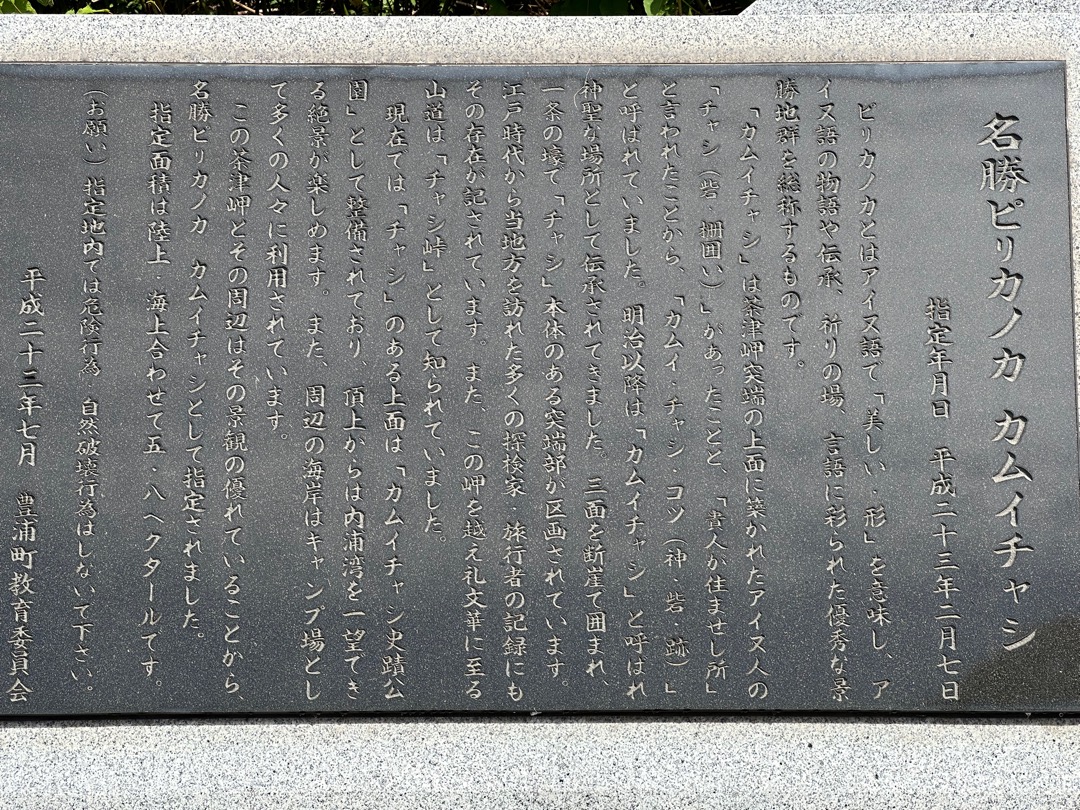 名勝ピリカノカ カムイチャシ
指定年月日 平成二十三年二月七日
ピリカノカとはアイヌ語で「美しい・形」を意味し、ア
イヌ語の物語や伝承、祈りの場、言語に彩られた優秀な景
勝地群を総称するものです。
「カムイチャシ」は茶津岬突端の上面に築かれたアイヌ人の
「チャシ(砦・柵囲い)」があったことと、「貴人が住ませし所」
と言われたことから、「カムイ・チャシ・コツ(神・砦・跡)」
と呼ばれていました。明治以降は「カムイチャシ」と呼ばれ
神聖な場所として伝承されてきました。三面を断崖で囲まれ、
一条の壕で「チャシ」本体のある突端部が区画されています。
江戸時代から当地方を訪れた多くの探検家・旅行者の記録にも
その存在が記されています。また、この岬を越え礼文華に至る
山道は「チャシ峠」として知られていました。
現在では「チャシ」のある上面は「カムイチャシ史蹟公
園」として整備されており、頂上からは内浦湾を一望でき
る絶景が楽しめます。また、周辺の海岸はキャンプ場とし
て多くの人々に利用されています。
この茶津岬とその周辺はその景観の優れていることから、
名勝ピリカノカ カムイチャシとして指定されました。
指定面積は陸上・海上合わせて五・八ヘクタールです。
(お願い)指定地内では危険行為・自然破壊行為はしないで下さい。
平成二十三年七月 豊浦町教育委員会